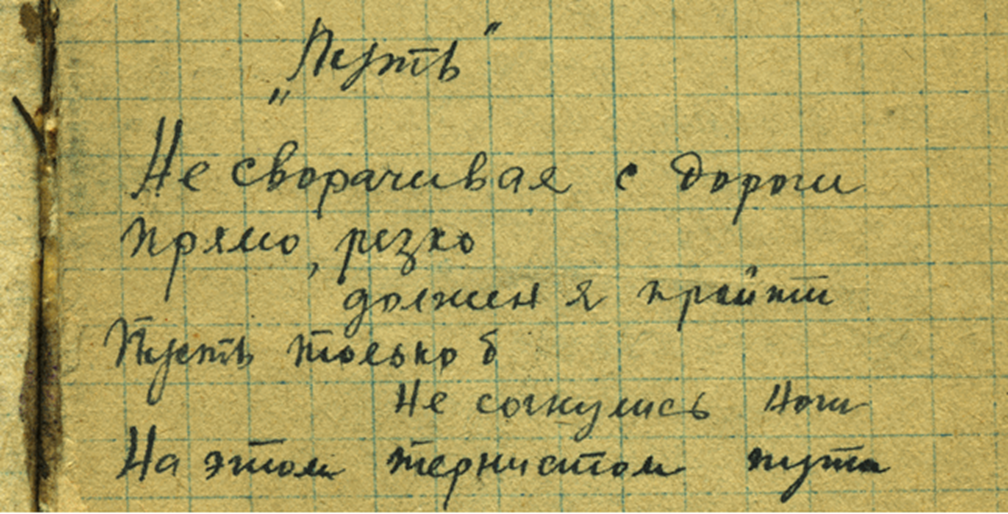 „Путь"
Не сворачивая с дороги
Прямо, резко
должен я пройти
Пусть только б
Не согнулись ноги
На этом тернистом пути